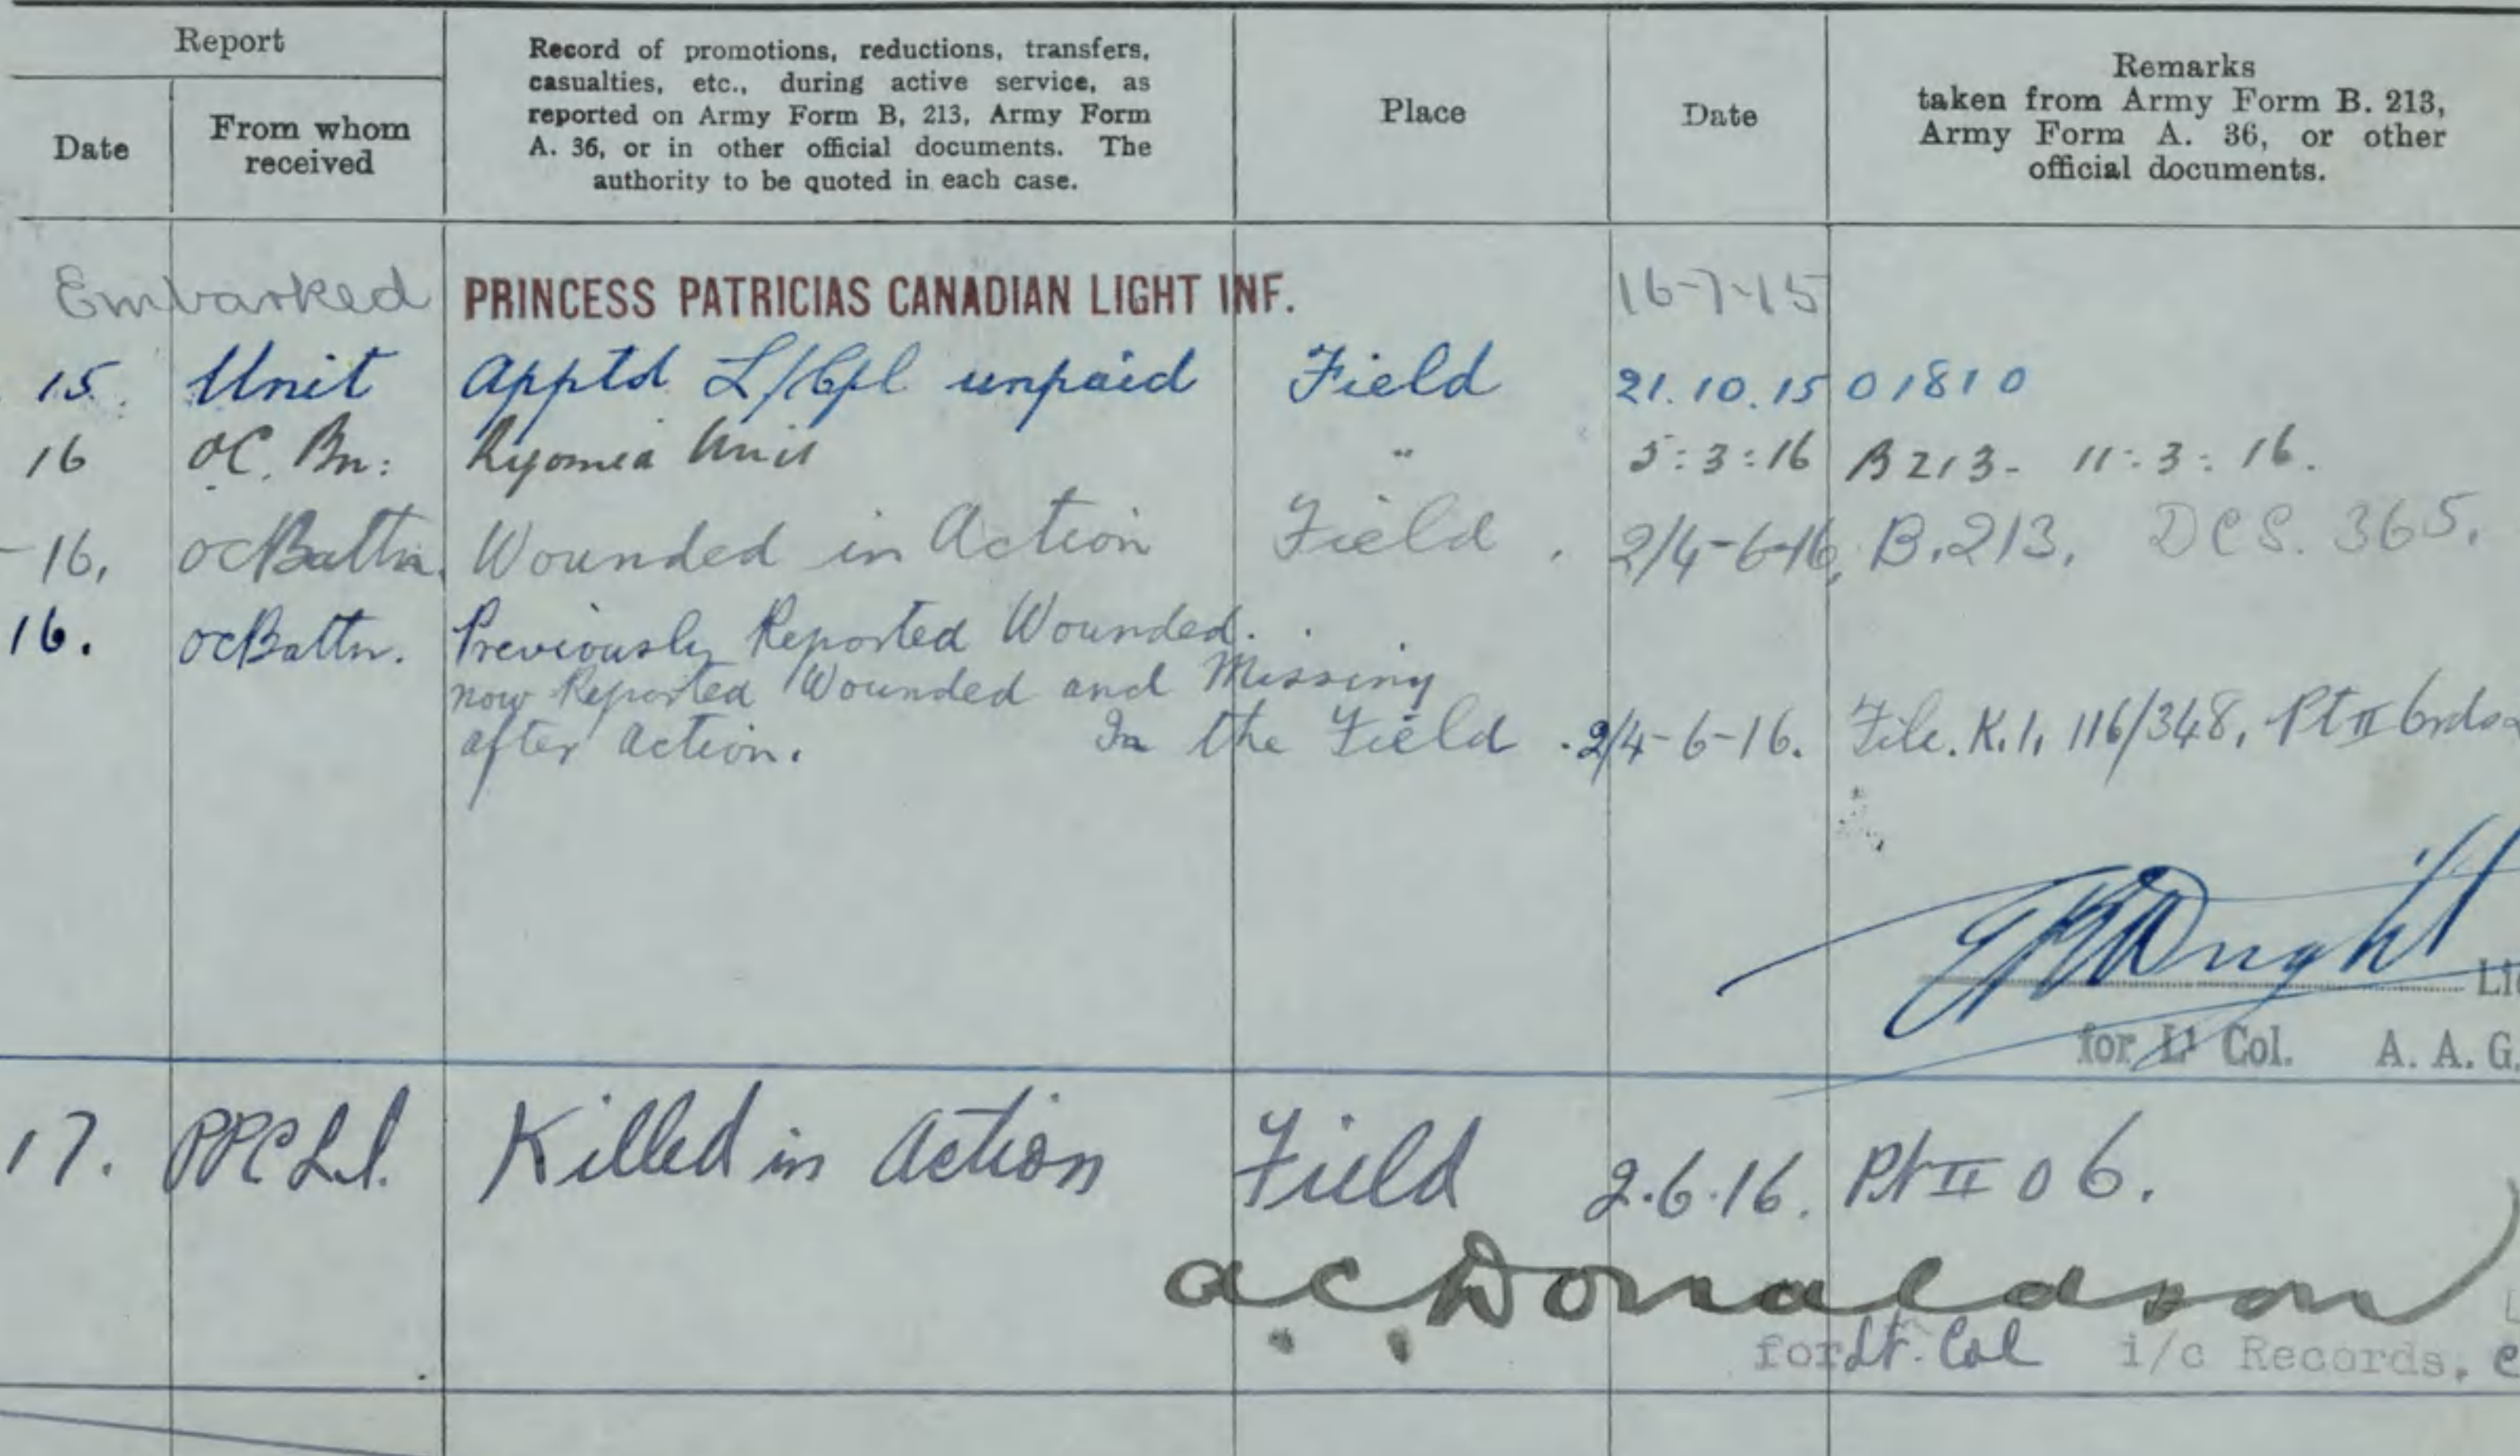 Report
Record of promotions, reductions, transfers,
casualties, etc., during active service, as
reported on Army Form B, 213, Army Form
A. 36, or in other official documents. The
authority to be quoted in each case.
Place
Date
Remarks
taken from Army Form B. 213,
Army Form A. 36, or other
official documents.
Date
From whom
received
Embarked PRINCESS PATRICIAS CANADIAN LIGHT INF. 16-7-15
15. Unit Apptd L/Cpl unpaid Field 21.10.15 01810
16 OC. Bn: Unit " 5:3:16 B213- 11:3:16.
-16, OCBattn. Wounded in Action Field. 2/4-6-16, B.213, DCS. 365.
16. OCBattn. Previously Reported Wounded.
now Reported Wounded and Missing
after action. In the Field. 2/4-6-16. File. K.1. 116/348, Pt II
for Lt Col. A. A. G.
17. PPCLI. Killed in Action Field 2.6.16. Pt II 06.
A.C. Donaldson
for Lt. Col i/c Records,